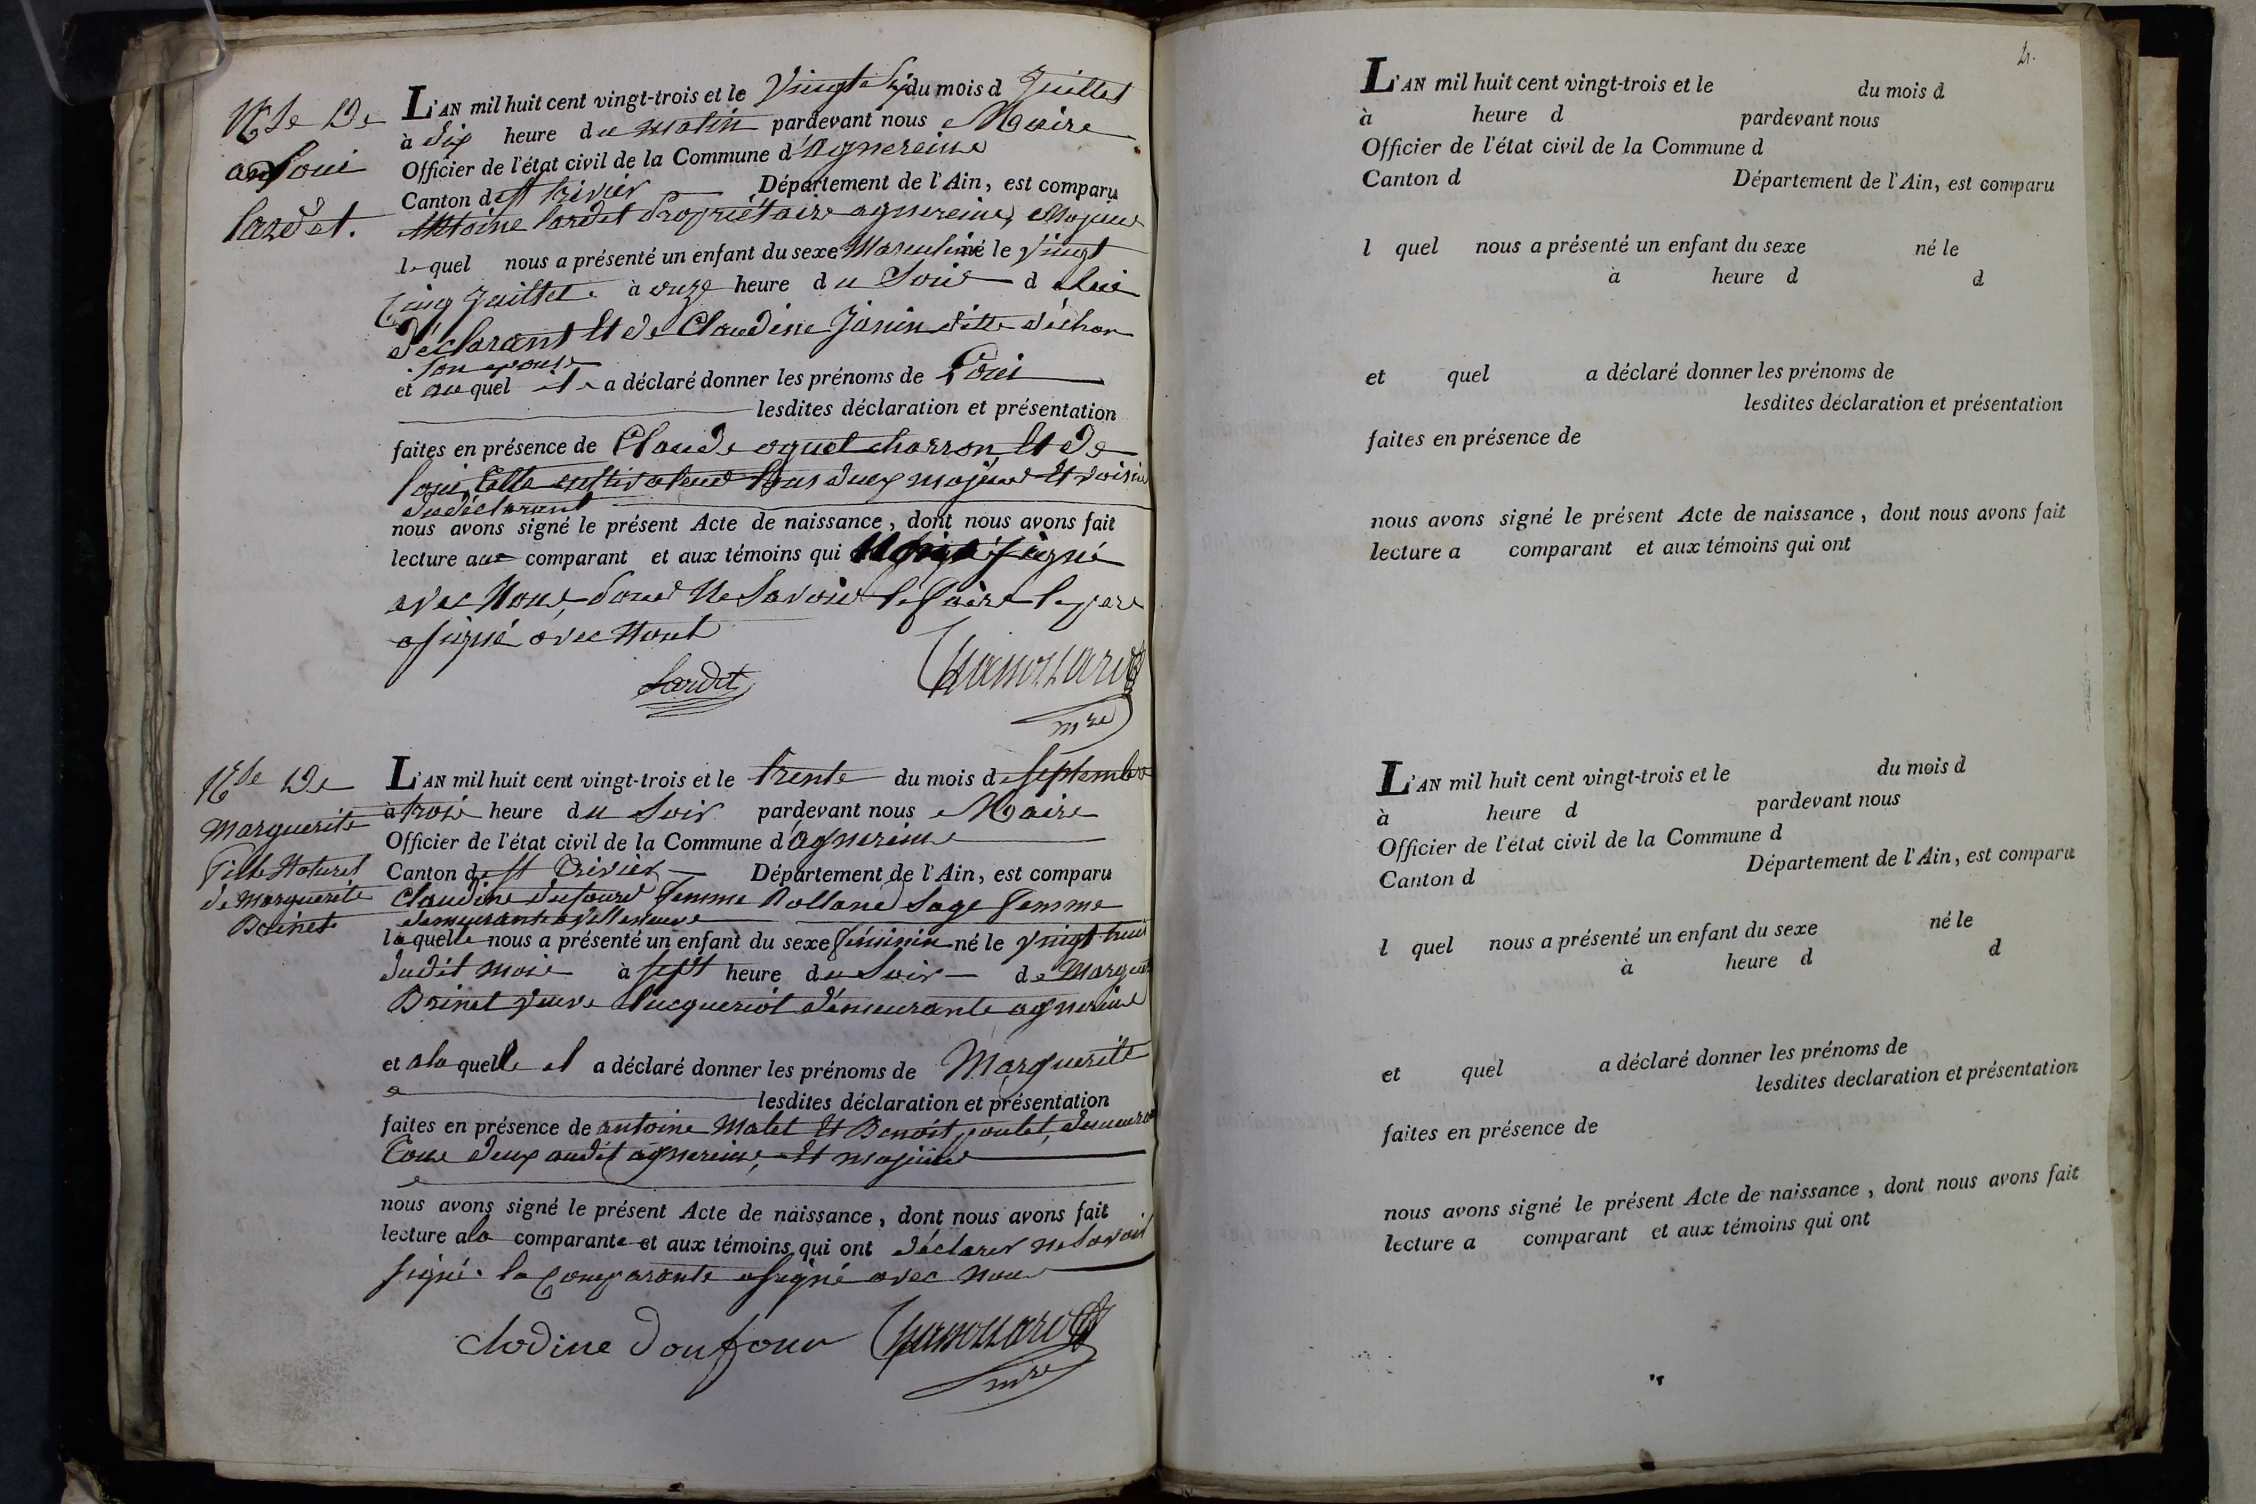 Nce De
Loui
lardet.
L'AN mil huit cent vingt-trois et le vingt six du mois d Juillet
à dix heure du matin pardevant nous Maire
Officier de l'état civil de la Commune d'agnereins
Canton de st trivier Département de l'Ain, est comparu
Antoine lardet Propriétaire agnereins, Majeur
lequel nous a présenté un enfant du sexe Masculin né le vingt
Cinq Juillet à onze heure du Soir d lui
déclarant Et de Claudine Janin ditte déchar
son epouse
et au quel il a déclaré donner les prénoms de Loui
lesdites déclaration et présentation
faites en présence de Claude oquet charron Et de
loui Cultivateur tous deux majeur Et voisin
du déclarant
nous avons signé le présent Acte de naissance, dont nous avons fait
lecture au comparant et aux témoins qui signé
avec Nous, pour Ne Savoir le faire le pere
a signé avec Nous
Lardet
Chanossard
mre
Nce De
Marguerite
Fille Naturel
de Marguerite
Boinet
L'AN mil huit cent vingt-trois et le trente du mois de Septembre
à trois heure du Soir pardevant nous Maire
Officier de l'état civil de la Commune d'agnereins
Canton de st Trivier Département de l'Ain, est comparu
Claudine dufour femme Rolland Sage femme
demeurante a villeneuve
laquelle nous a présenté un enfant du sexe féminin né le vingt huit
dudit mois à sept heure du Soir de Marguerite
Boinet veuve demeurante agnereins
et a la quelle el a déclaré donner les prénoms de Marguerite
lesdites déclaration et présentation
faites en présence de antoine Matet Et Benoit poulet, demeurant
Tous deux audit agnereins, Et majeurs
nous avons signé le présent Acte de naissance, dont nous avons fait
lecture a la comparante et aux témoins qui ont déclarer ne Savoir
signé. la Comparante a signé avec nous
clodine doufour Chanossard
mre
4.
L'AN mil huit cent vingt-trois et le du mois d
à heure d pardevant nous
Officier de l'état civil de la Commune d
Canton d Département de l'Ain, est comparu
l quel nous a présenté un enfant du sexe né le
à heure d d
et quel a déclaré donner les prénoms de
lesdites déclaration et présentation
faites en présence de
nous avons signé le présent Acte de naissance, dont nous avons fait
lecture a comparant et aux témoins qui ont
L'AN mil huit cent vingt-trois et le du mois d
à heure d pardevant nous
Officier de l'état civil de la Commune d
Canton d Département de l'Ain, est comparu
l quel nous a présenté un enfant du sexe né le
à heure d d
et quel a déclaré donner les prénoms de
lesdites declaration et présentation
faites en présence de
nous avons signé le présent Acte de naissance, dont nous avons fait
lecture a comparant et aux témoins qui ont